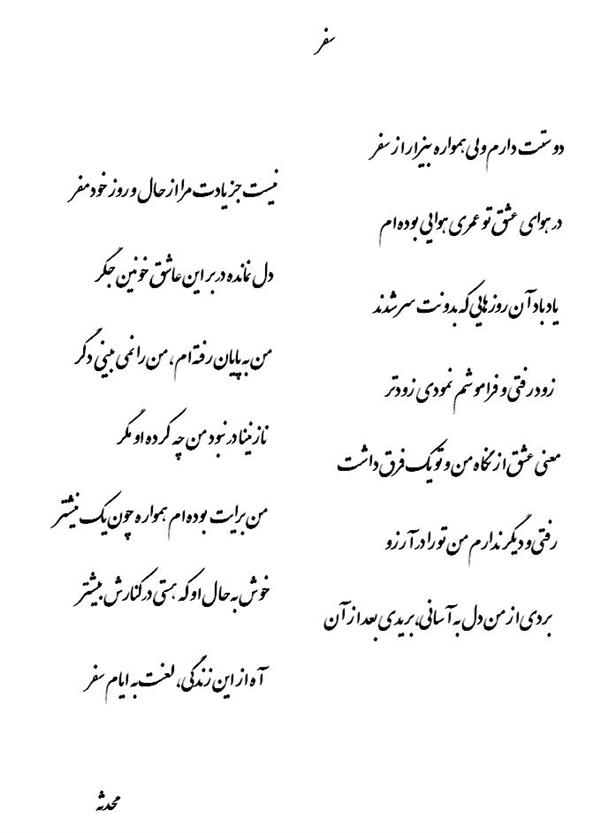 سفر
دوستت دارم ولی همواره بیزار از سفر
نیست جز یادت مرا از حال و روز خود مفر
در هوای عشق تو عمری هوایی بوده ام
دل نمانده در بر این عاشق خونین جگر
یاد باد آن روزهایی که بدونت سر شدند
من به پایان رفته ام، من را نمی بینی دگر
زود رفتی و فراموشم نمودی زودتر
نازنینا در نبود من چه کرده او مگر
معنی عشق از نگاه من و تو یک فرق داشت
من برایت بوده ام همواره چون یک نیشتر
رفتی و دیگر ندارم من تو را در آرزو
خوش به حال او که هستی در کنارش بیشتر
بردی از من دل به آسانی، بریدی بعد از آن
آه از این زندگی، لعنت به ایام سفر
محدثه